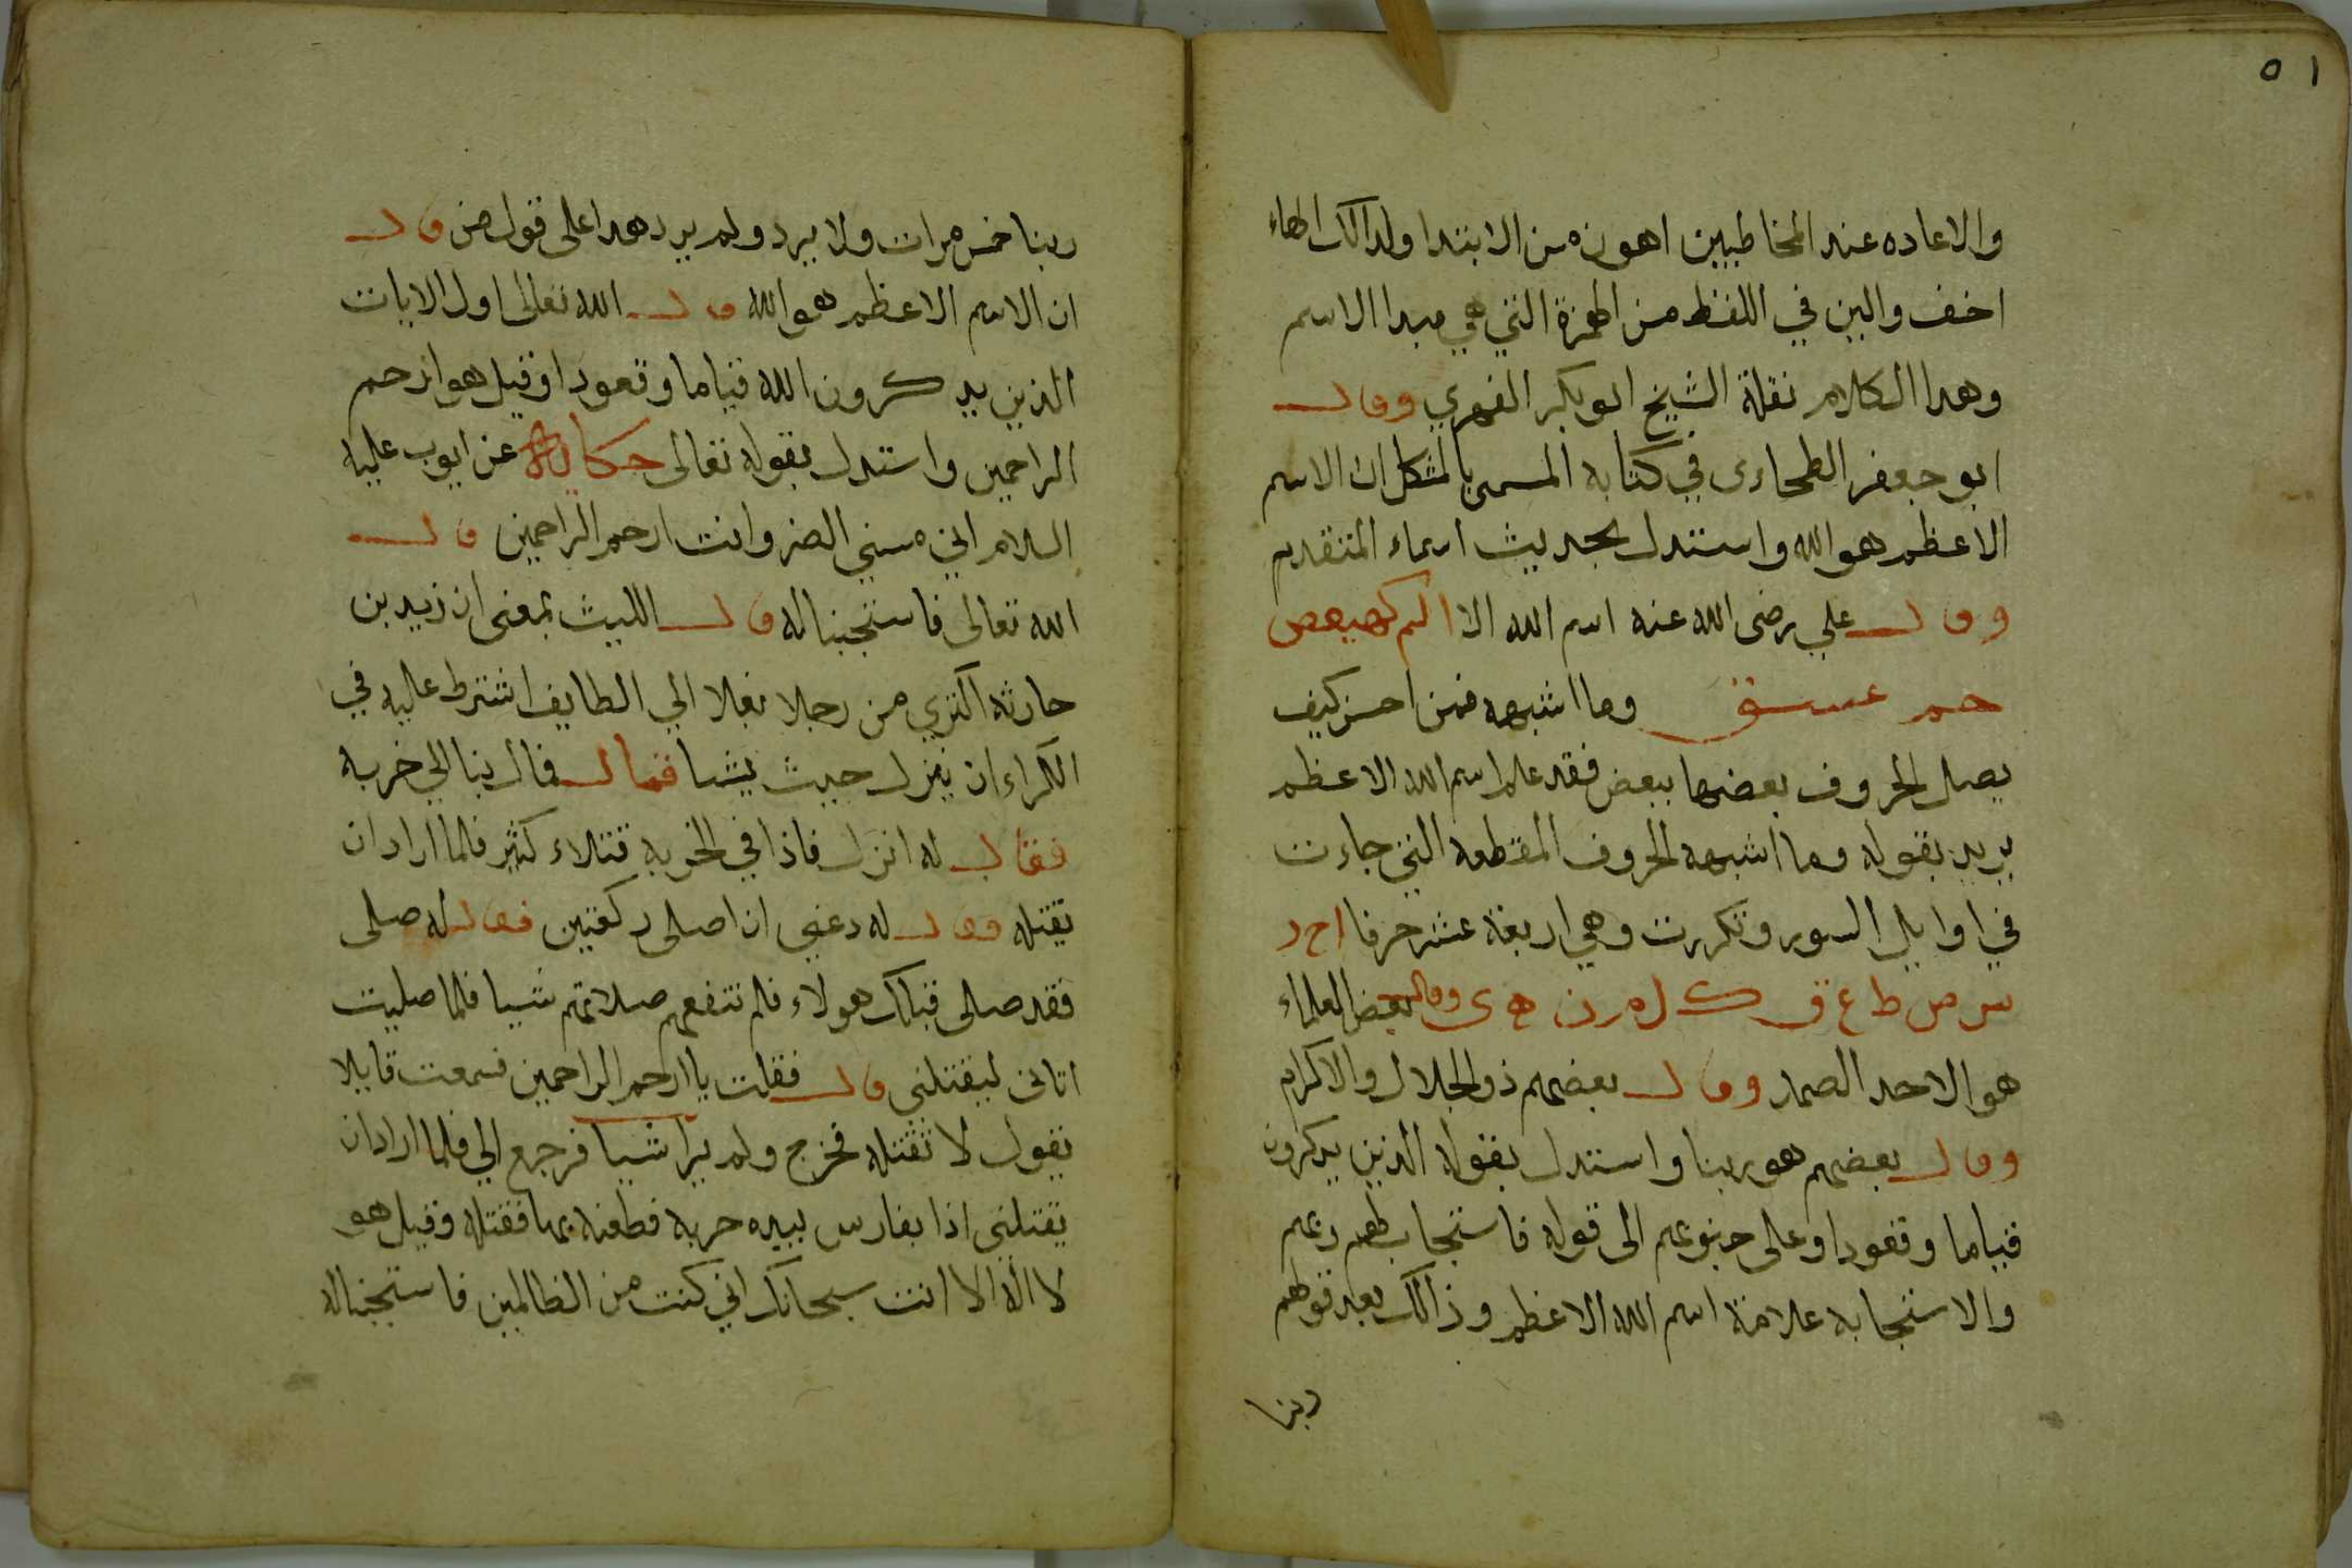 ٥١
والاعاده عند المخاطبين اهون من الابتدا ولدالك الهاء
اخف والين في اللفظ من الهمزة التي هي مبدا الاسم
وهدا الكلام نقلة الشيخ ابو بكر الفهري وقال
ابو جعفر الطحاوى في كتابه المسمى بالمشكل ان الاسم
الاعظم هو الله واستدل بحديث اسماء المتقدم
وقال علي رضى الله عنه اسم الله الا الم كهيعص
حم عسق وما اشبهه فمن احسن كيف
يصل الحروف بعضها ببعض فقد علم اسم الله الاعظم
يريد بقوله وما اشبهه الحروف المقطعه التي جاءت
في اوايل السور وتكررت وهي اربعة عشر حرفا ا ح ر
س ص ط ع ق ك ل م ن ه ى وقال بعض العلماء
هو الاحد الصمد وقال بعضهم ذو الجلال والاكرام
وقال بعضهم هو ربنا واستدل بقوله الذين يدكرون
قياما وقعودا وعلى جنوبهم الى قوله فاستجاب لهم ربهم
والاستجابه علامة اسم الله الاعظم وذالك بعد قولهم
ربنا
ربنا خمس مرات ولا يرد ولم يرد هدا على قول من قال
ان الاسم الاعظم هو الله قال الله تعالى اول الايات
الذين يدكرون الله قياما وقعودا وقيل هو ارحم
الراحمين واستدل بقوله تعالى حكاية عن ايوب عليه
السلام اني مسني الضر وانت ارحم الراحمين قال
الله تعالى فاستجبنا له قال الليث بمعنى ان زيد بن
حارثه اكتري من رجلا بغلا الي الطايف اشترط عليه في
الكراء ان ينزل حيث يشا فقال فمال بنا الي خربه
فقال له انزل فاذا في الخربه قتلاء كثير فلما اراد ان
يقتله فقال له دعني ان اصلى ركعتين فقال له صلى
فقد صلى قبلك هولاء فلم تنفعهم صلاتهم شيا فلما صليت
اتانى ليقتلنى قال فقلت يا ارحم الراحمين فسمعت قايلا
يقول لا تقتله فخرج ولم يرا شيا فرجع الي فلما اراد ان
يقتلنى اذا بفارس بيده حربه فطعنه بها فقتله وقيل هو
لا اله الا انت سبحانك اني كنت من الظالمين فاستجبنا له